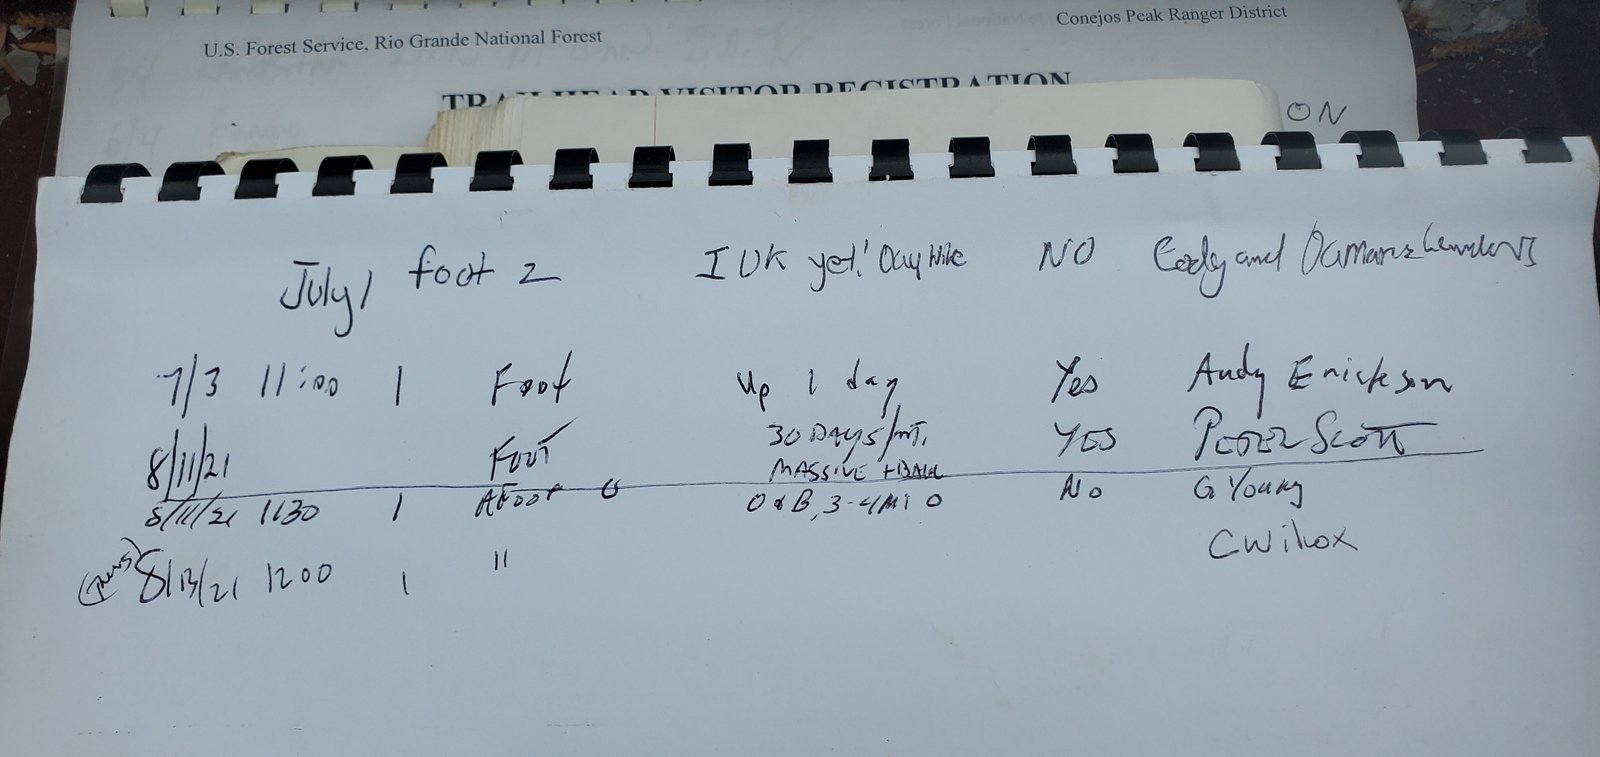 U.S. Forest Service, Rio Grande National Forest
Conejos Peak Ranger District
TRAILHEAD VISITOR REGISTRATION
ON
July 1 foot 2 I DK yet! Day Hike NO Cody and
7/3 11:00 1 Foot Up 1 day Yes Andy Erickson
8/11/21 FOOT 30 DAYS/MT. MASSIVE + YES PETER SCOTT
8/11/21 1130 1 AFOOT 0 O & B, 3-4 Mi No G Young
8/13/21 1200 1 " C Wilcox